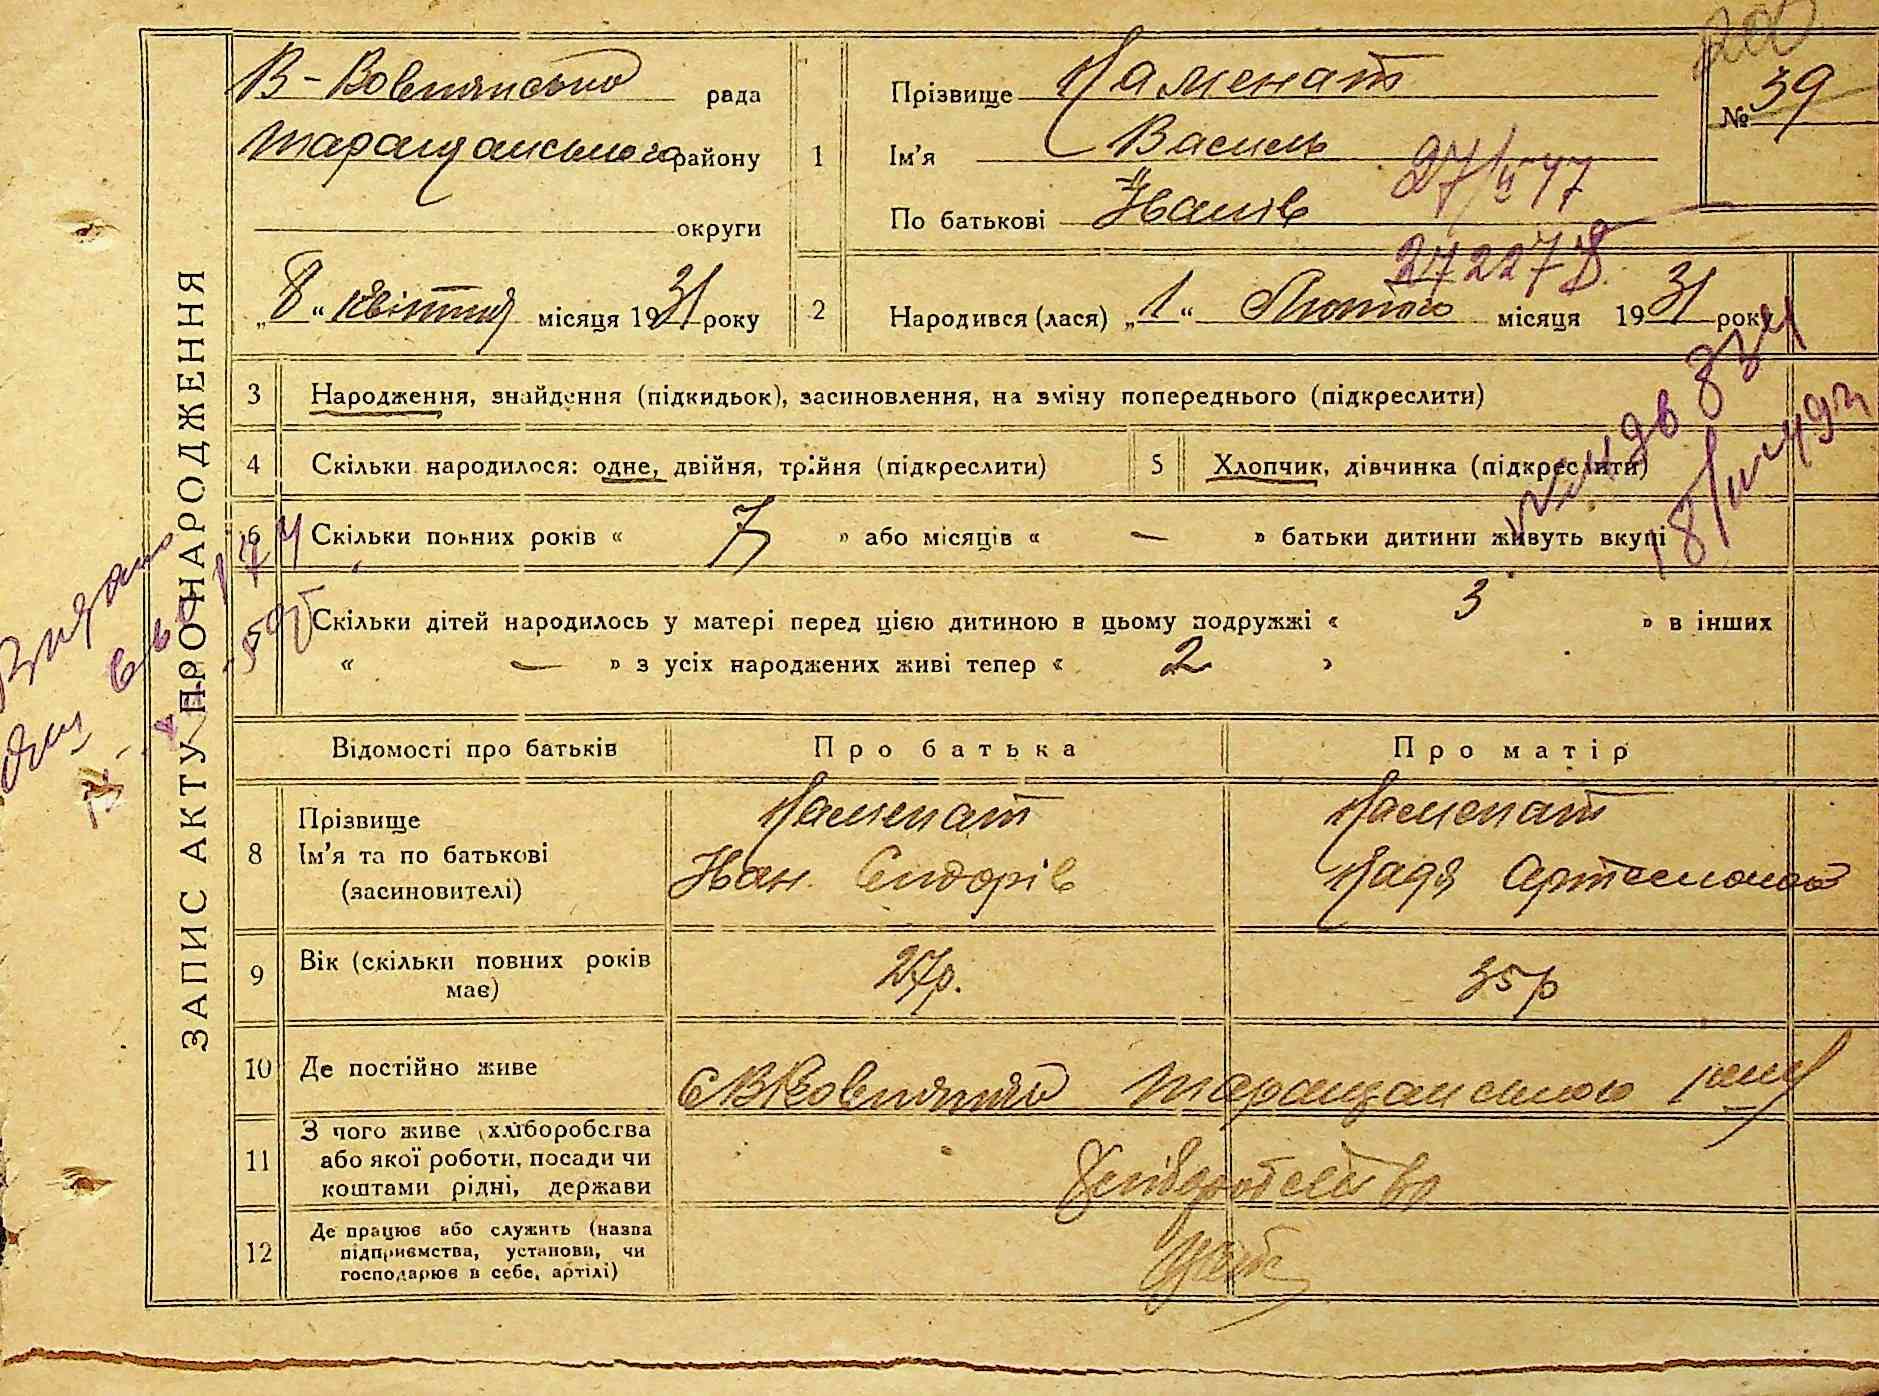 № 39
ЗАПИС АКТУ ПРО НАРОДЖЕННЯ
В-Вовнянська рада
Таращанського району
округи
„8“ квітня місяця 1931 року
1
Прізвище Каменат
Ім'я Василь
По батькові Іванів
27/II 47
272278
2
Народився (лася) „1“ Лютого місяця 1931 року
3 Народження, знайдення (підкидьок), засиновлення, на зміну попереднього (підкреслити)
4 Скільки народилося: одне, двійня, трійня (підкреслити)
5 Хлопчик, дівчинка (підкреслити)
6 Скільки повних років « 7 » або місяців « — » батьки дитини живуть вкупі
7 Скільки дітей народилось у матері перед цією дитиною в цьому подружжі « 3 » в інших
« — » з усіх народжених живі тепер « 2 »
Відомості про батьків
Про батька
Про матір
8
Прізвище
Ім'я та по батькові
(засиновителі)
Каменат
Іван Сидорів
Каменат
Надя Артемонова
9
Вік (скільки повних років
має)
27р.
35р
10 Де постійно живе
Таращанського
11
З чого живе (хліборобства
або якої роботи, посади чи
коштами рідні, держави
Хліборобство
12
Де працює або служить (назва
підприємства, установи, чи
господарює в себе, артілі)